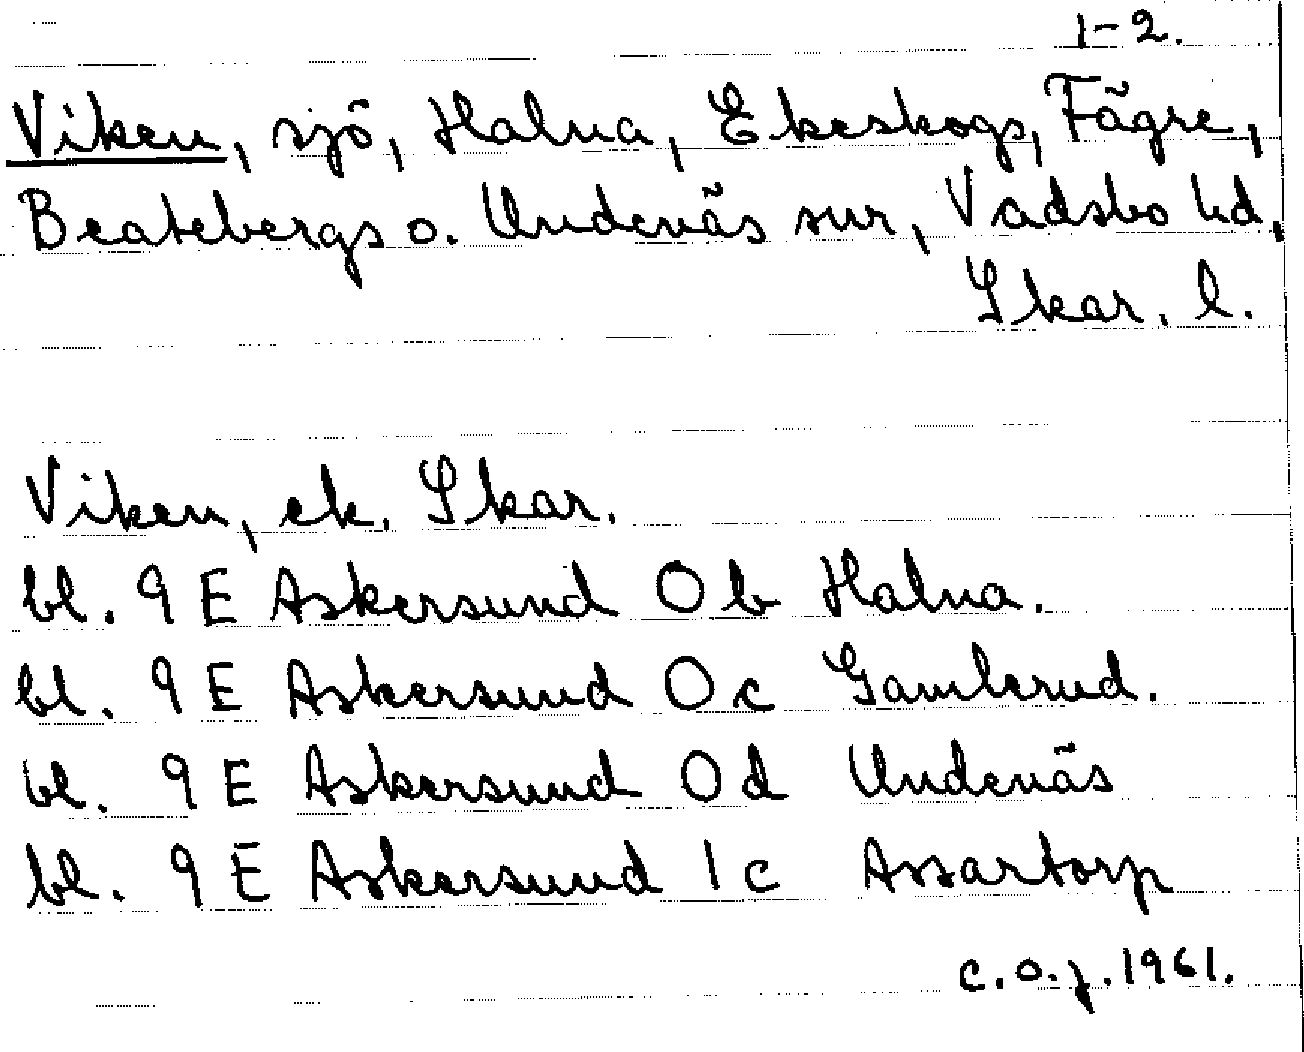 1-2.
Viken, sjö, Halna, Ekeskogs, Fägre,
Beatebergs o. Undenäs snr, Vadsbo hd,
Skar. l.
Viken, ek. Skar.
bl. 9 E Askersund 0 b Halna.
bl. 9 E Askersund 0 c Gamlerud.
bl. 9 E Askersund 0 d Undenäs
bl. 9 E Askersund 1 c Assartorp
c.o.j. 1961.